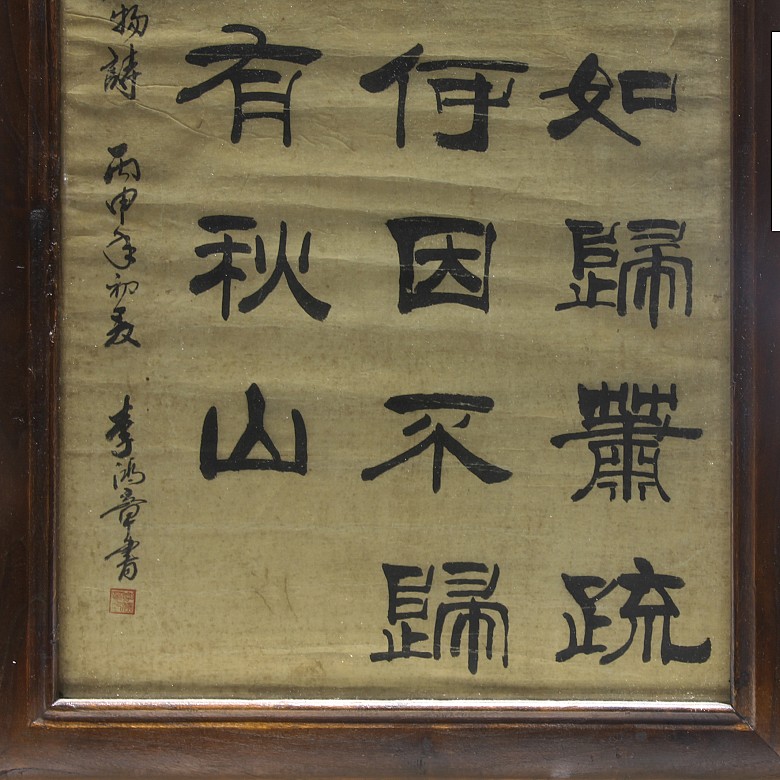 如歸蕭疏
何因不歸
有秋山
物詩 丙申年初夏 李鴻章書